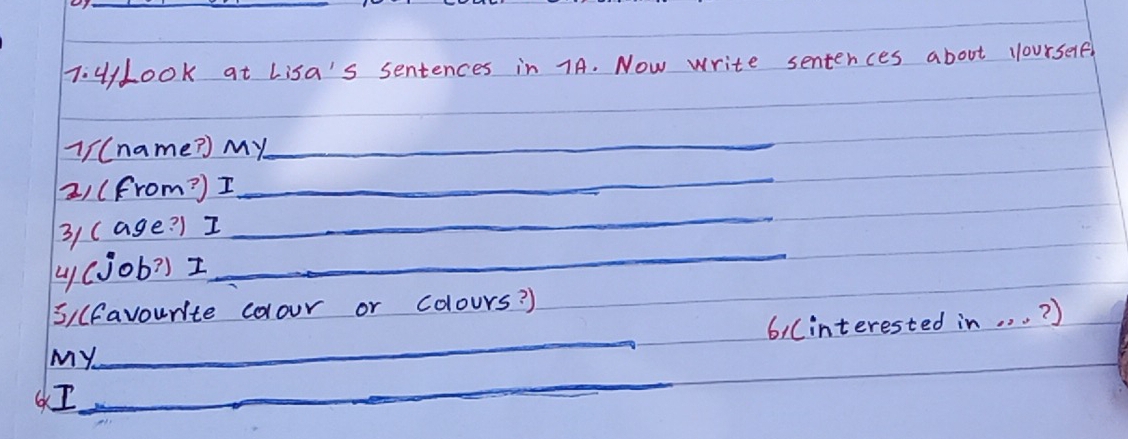 1.4) Look at Lisa's sentences in 1A. Now write sentences about yourself
1) (name?) My
2) (from?) I
3) (age?) I
4) (job?) I
5) (favourite colour or colours?)
6) (interested in ...?)
My
6) I